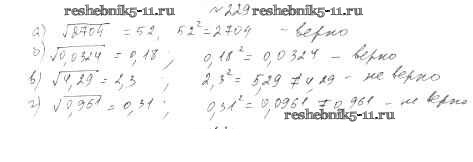 reshebnik5-11.ru №229 reshebnik5-11.ru
а) √2704 = 52, 52² = 2704 - верно
б) √0,0324 = 0,18 ; 0,18² = 0,0324 - верно
в) √4,29 = 2,3 ; 2,3² = 5,29 ≠ 4,29 - не верно
г) √0,961 = 0,31 ; 0,31² = 0,0961 ≠ 0,961 - не верно
reshebnik5-11.ru